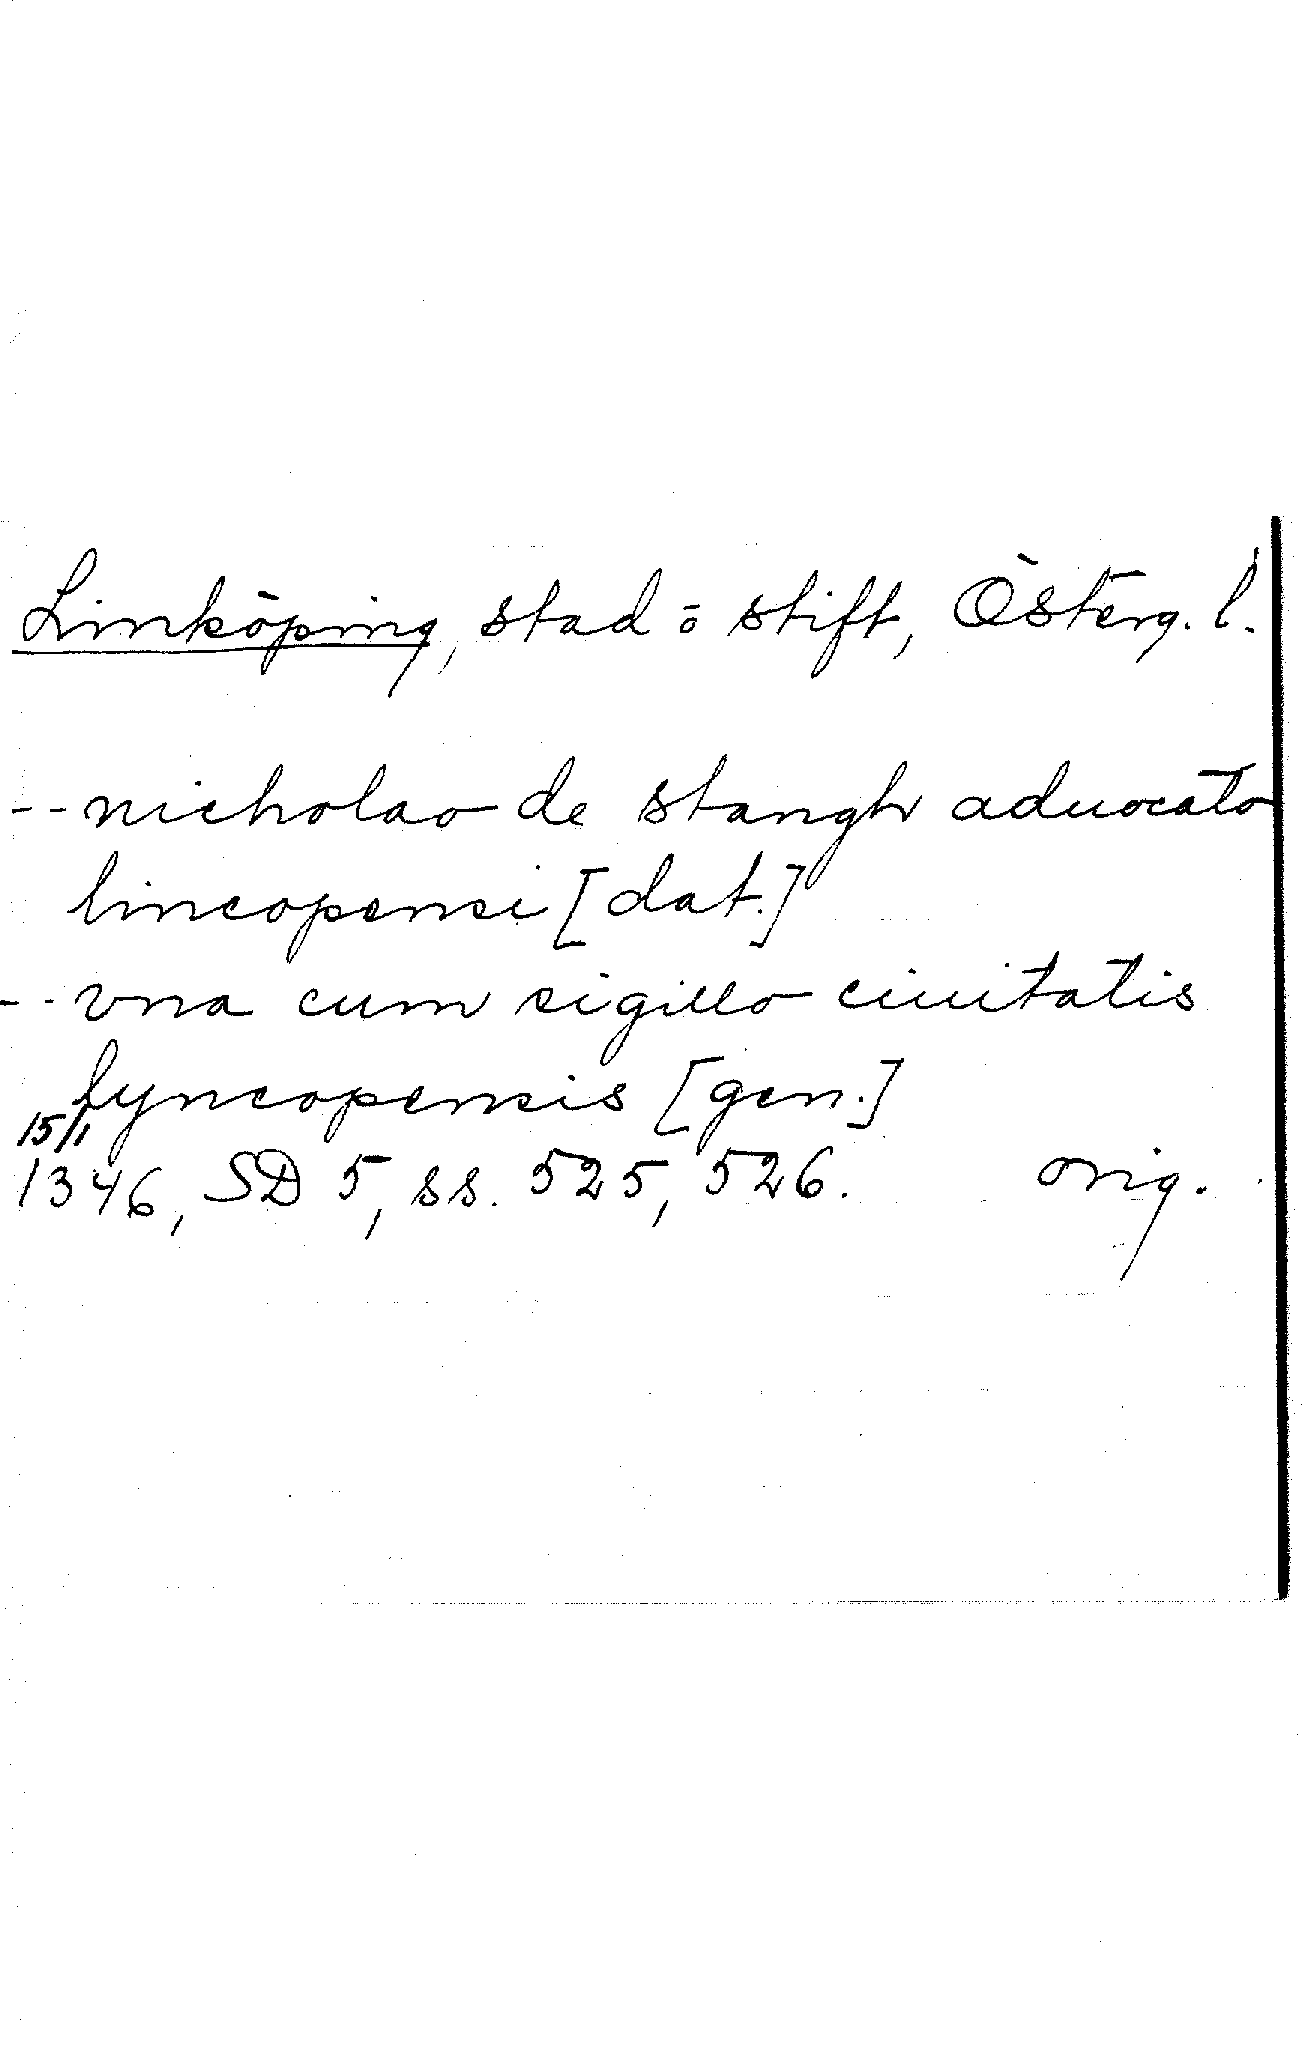 Linköping, stad o stift, Österg. l.
-- nicholao de stangh aduocato
lincopensi [dat.]
-- vna cum sigillo ciuitatis
lyncopensis [gen.]
15/1
1346, SD 5, ss. 525, 526. orig.